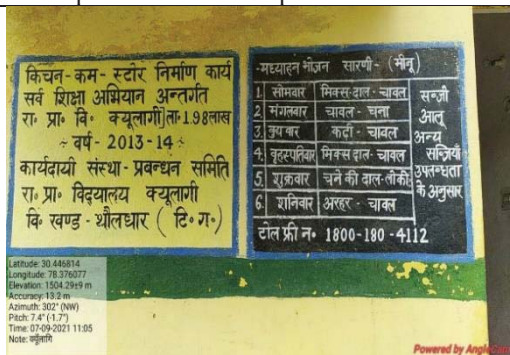 किचन-कम-स्टोर निर्माण कार्य
सर्व शिक्षा अभियान अन्तर्गत
रा० प्रा० वि० क्यूलागी ला०-1.98लाख
÷ वर्ष - 2013-14 ÷
कार्यदायी संस्था - प्रबन्धन समिति
रा० प्रा० विद्यालय क्यूलागी
वि० खण्ड - थौलधार ( टि० ग० )
मध्याहन भोजन सारणी - (मीनू)
1. सोमवार मिक्स-दाल-चावल
2. मंगलवार चावल - चना
3. बुधवार कढ़ी - चावल
4. वृहस्पतिवार मिक्स दाल-चावल
5. शुक्रवार चने की दाल-लौकी
6. शनिवार अरहर - चावल
सब्जी
आलू
अन्य
सब्जियाँ
उपलब्धता
के अनुसार
टोल फ्री न० 1800-180-4112
Latitude: 30.446814
Longitude: 78.376077
Elevation: 1504.29±9 m
Accuracy: 13.2 m
Azimuth: 302° (NW)
Pitch: 7.4° (-1.7°)
Time: 07-09-2021 11:05
Note: क्यूलागि
Powered by AngleCam